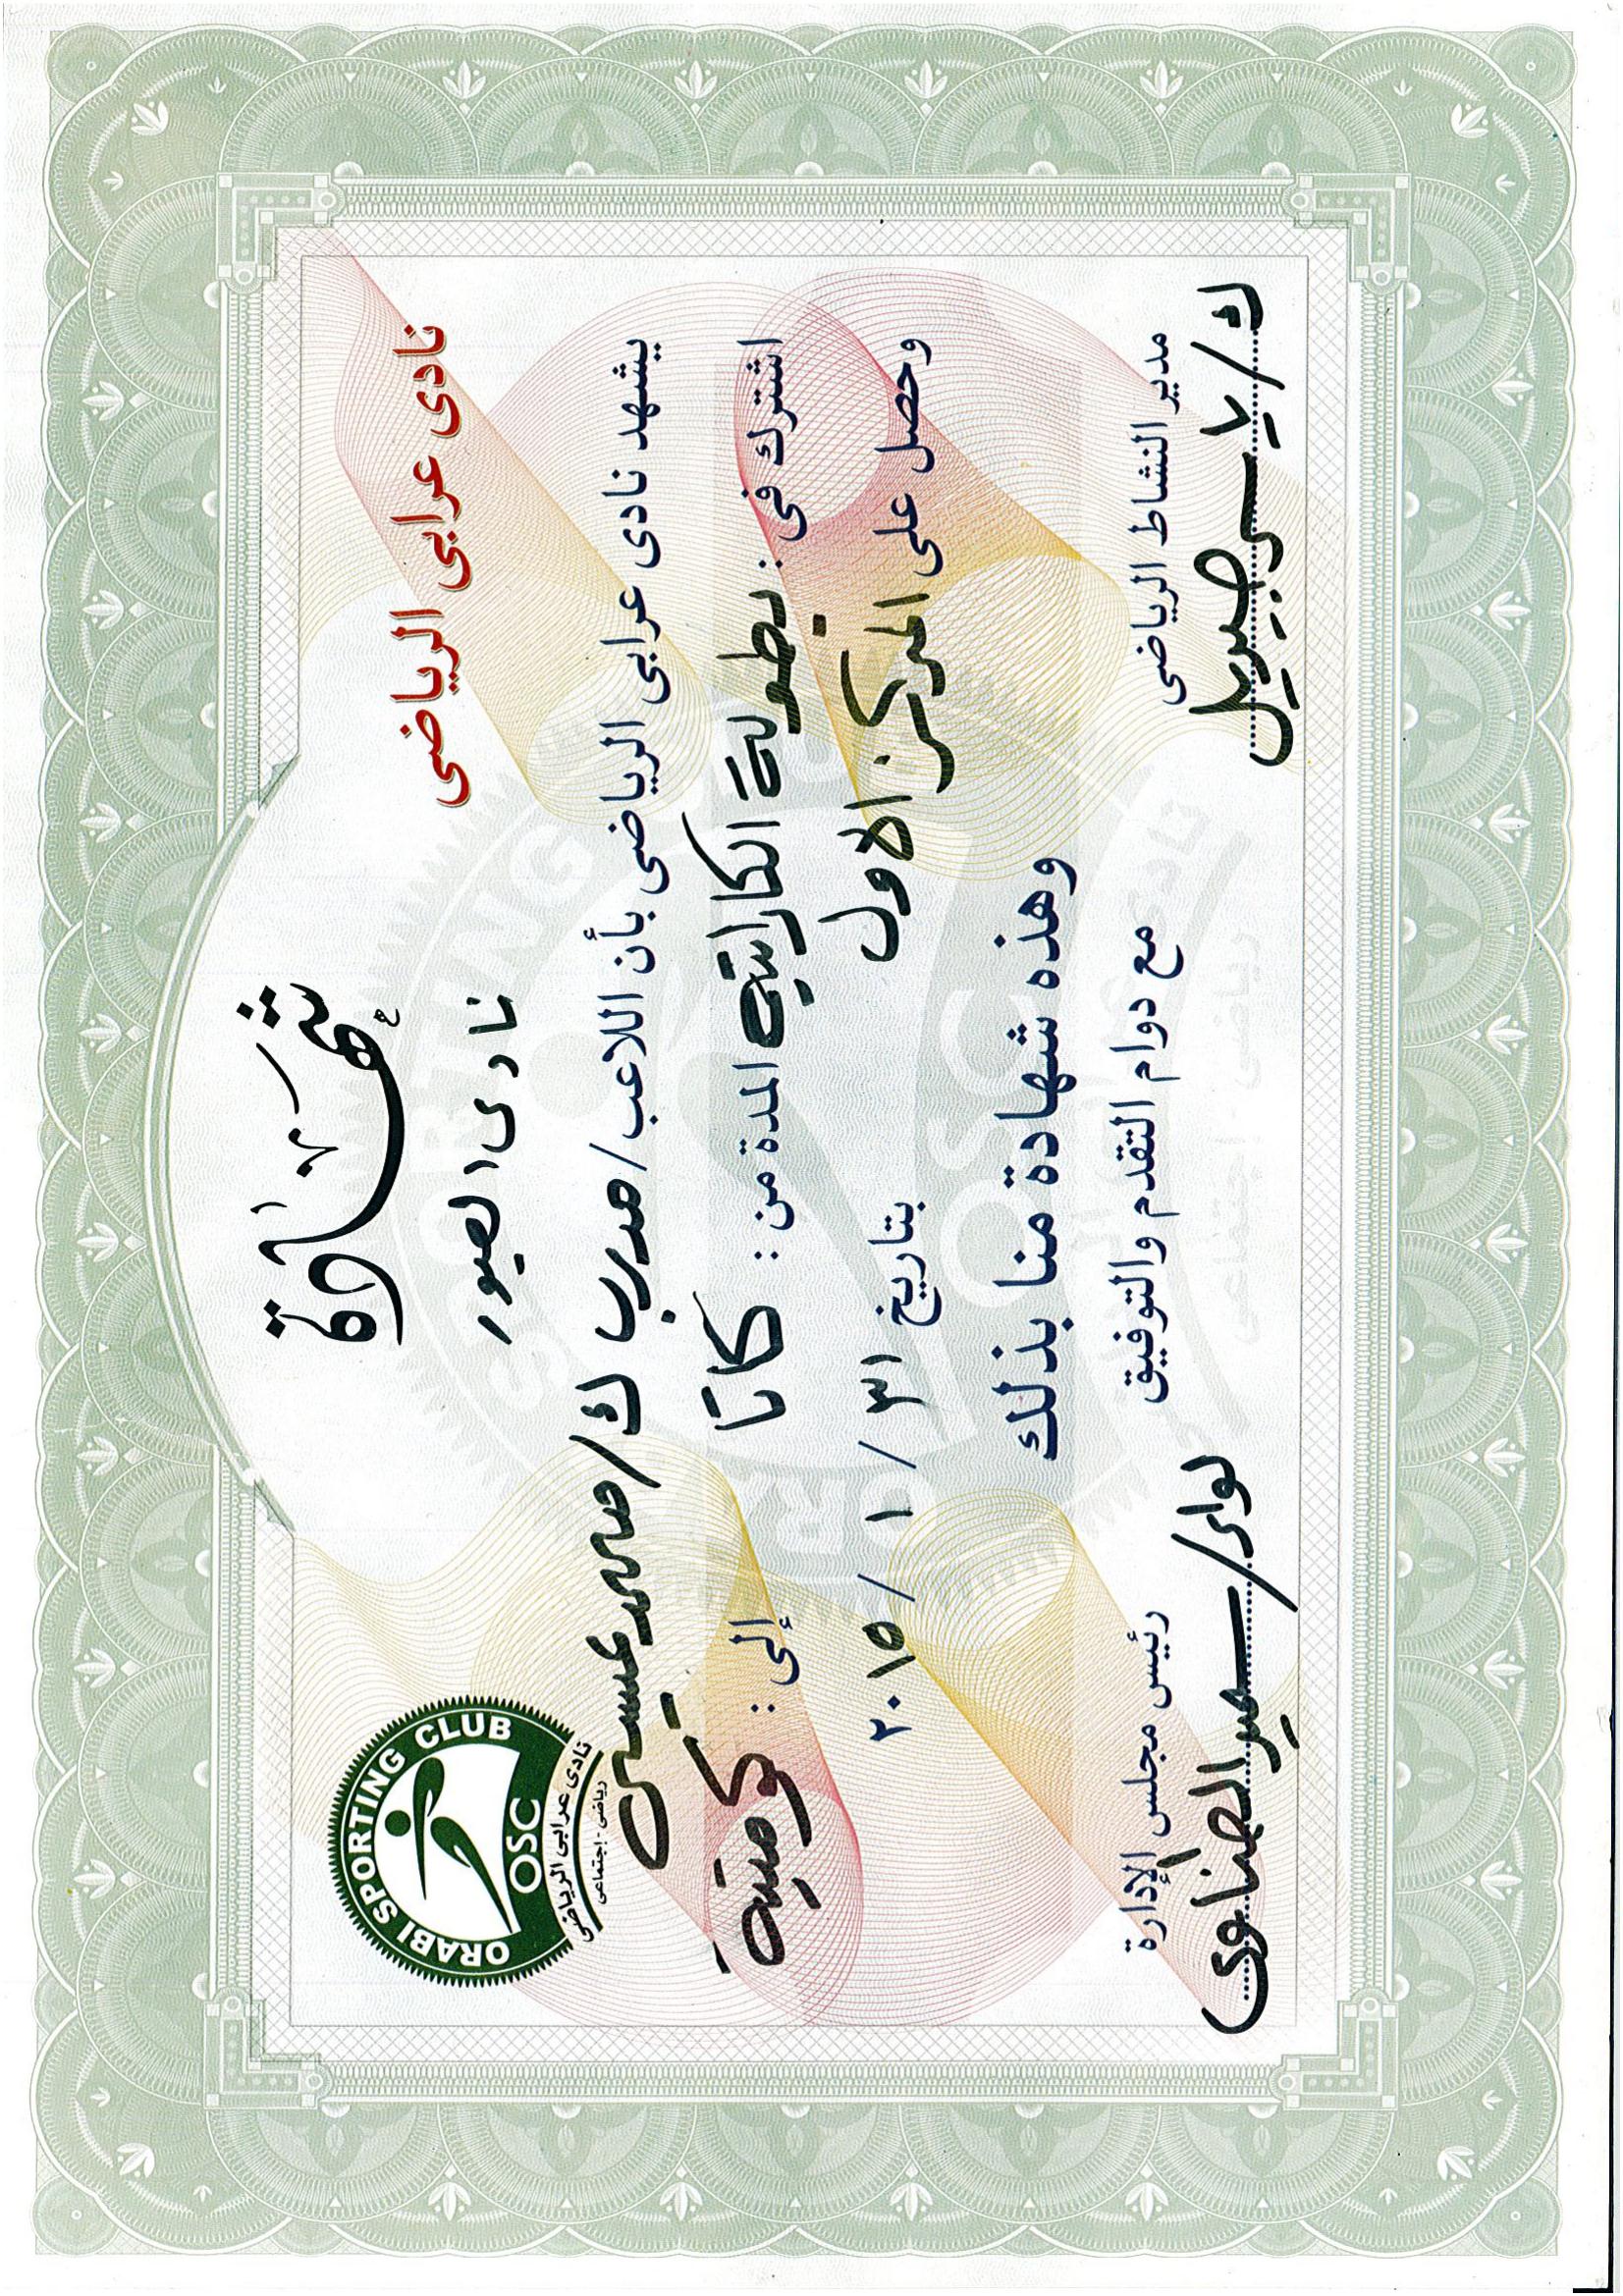 شهادة
نادى عرابى الرياضى
ORABI SPORTING CLUB
OSC
نادى عرابى الرياضى
رياضى - إجتماعى
نادى الصيور
يشهد نادى عرابى الرياضى بأن اللاعب / مدرب ك / محمد
اشترك فى : بطولة الكاراتية المدة من : كاتا إلى : كومتية
وحصل على المركز الاول بتاريخ ٣١ / ١ / ٢٠١٥
وهذه شهادة منا بذلك
مع دوام التقدم والتوفيق
مدير النشاط الرياضى رئيس مجلس الإدارة
ك / ياسر جبريل لواء / سمير الطناوى